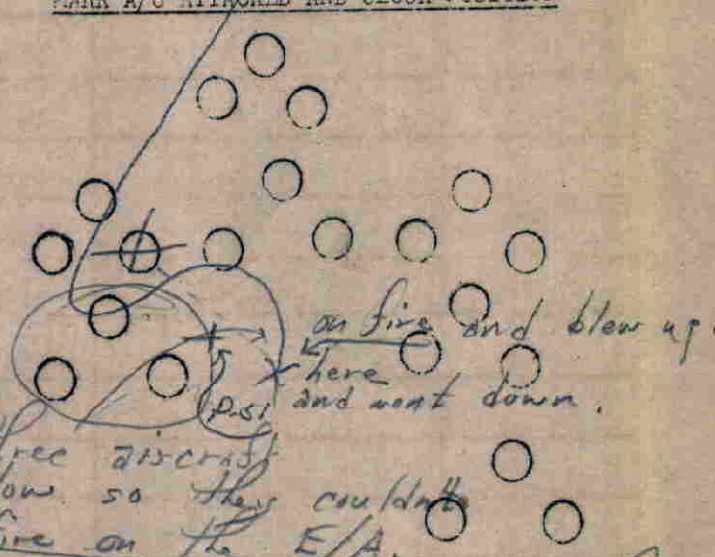 MARK A/C ATTACKED AND CLOCK POSITION
on fire and blew up
here
and went down.
P-51
ree aircraft
low so they couldn't
fire on the E/A.